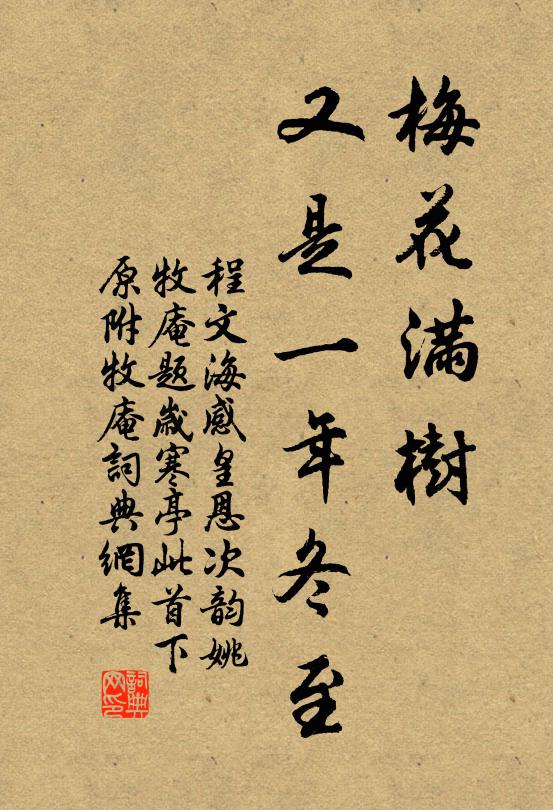 梅花滿樹
又是一年冬至
程文海感皇恩次韵姚
牧庵題歲寒亭此首下
原附牧庵詞典網集
詞典
网印